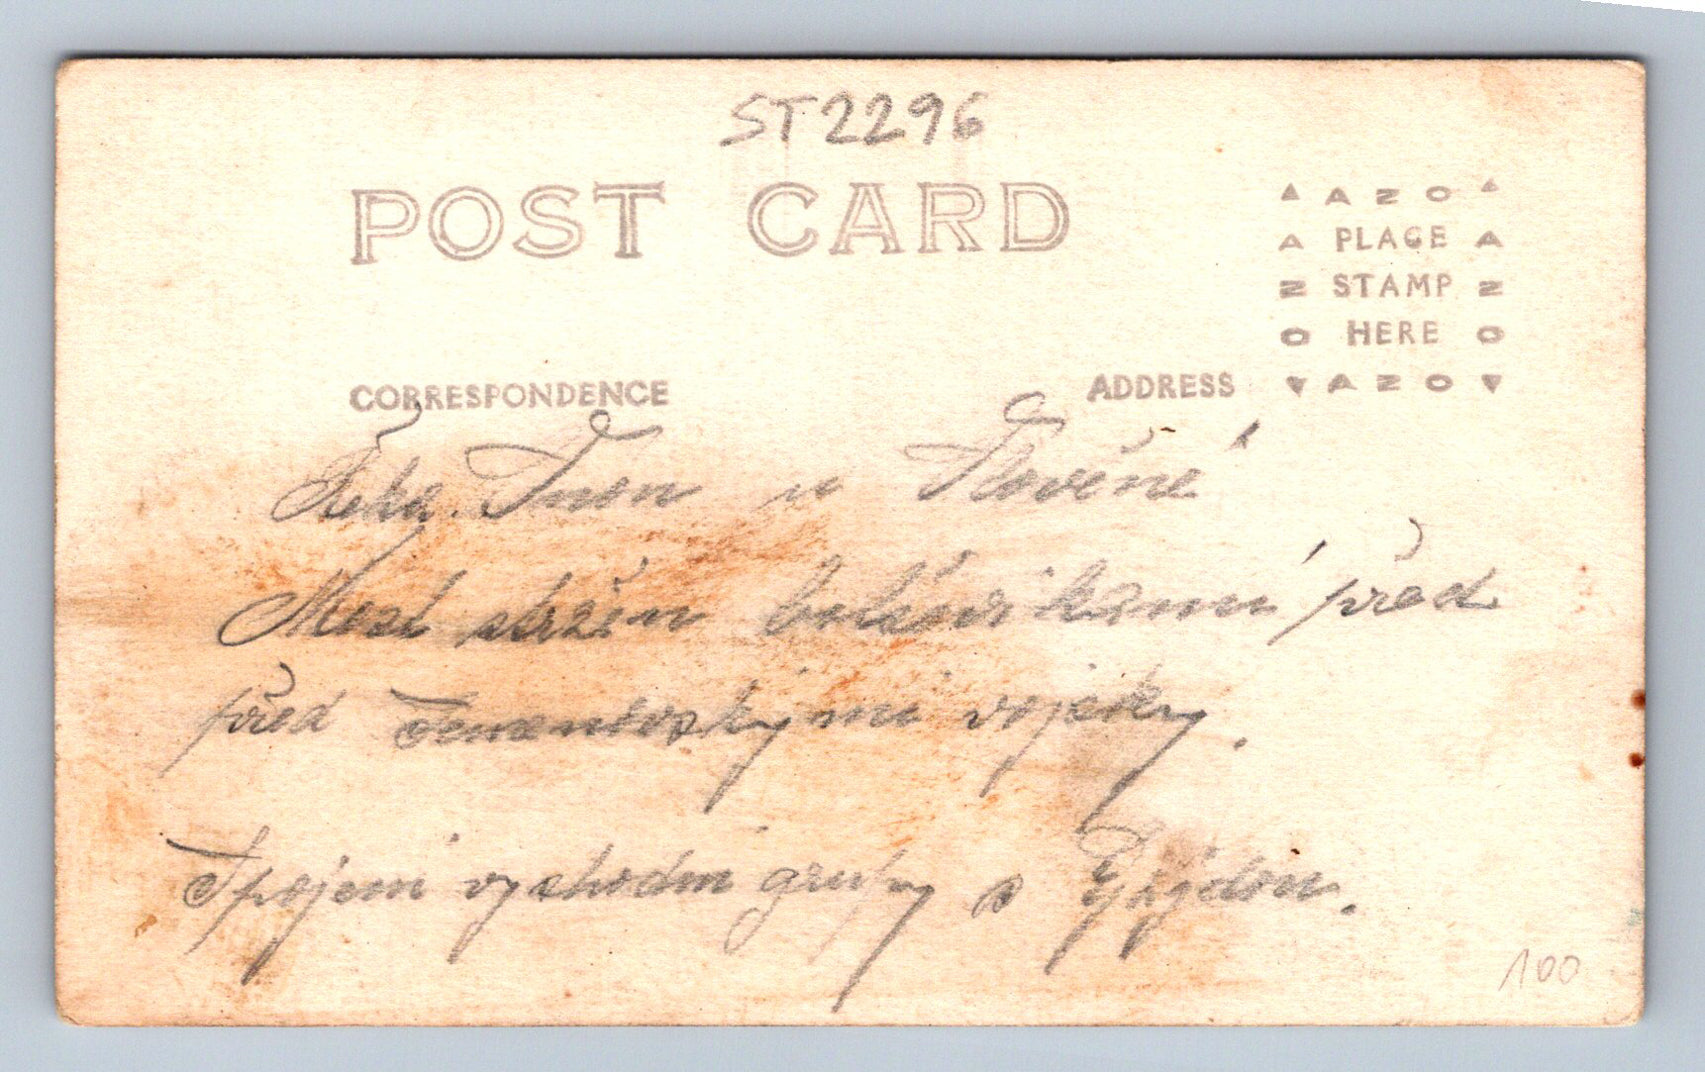 ST2296
POST CARD
AZO
PLACE
STAMP
HERE
AZO
CORRESPONDENCE
ADDRESS
Řeka Inon u Slověné
Most stržen bolševikami před
před Semenovskými vojsky.
Spojení východní grupy s
100